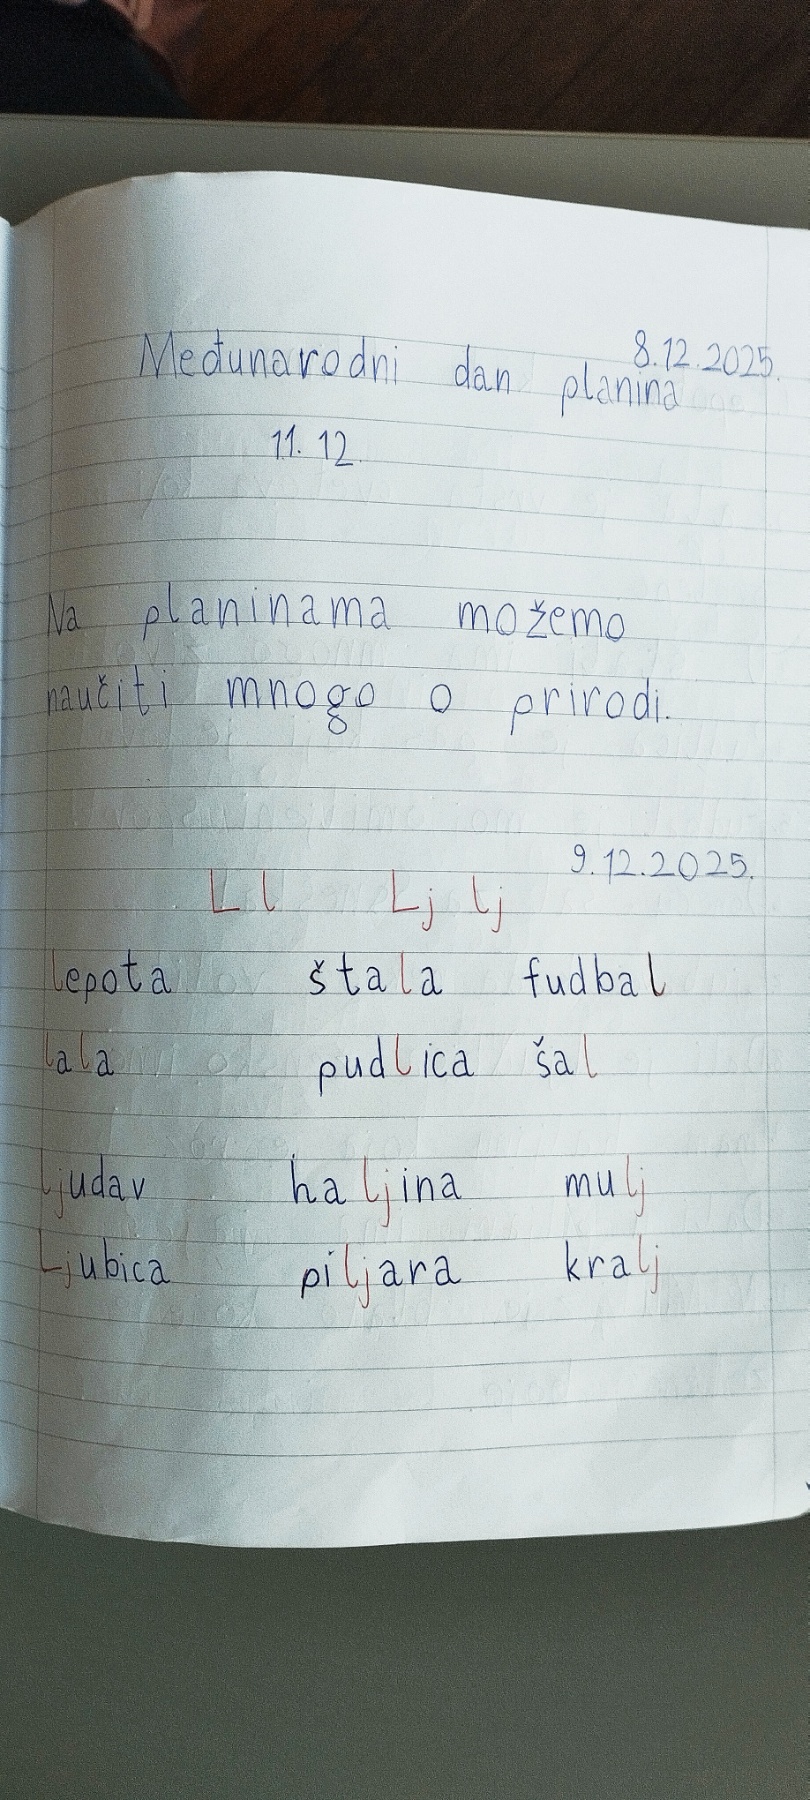 8.12.2025.
Međunarodni dan planina
11. 12.
Na planinama možemo
naučiti mnogo o prirodi.
9.12.2025.
L l Lj lj
lepota štala fudbal
lala pudlica šal
ljudav haljina mulj
Ljubica piljara kralj